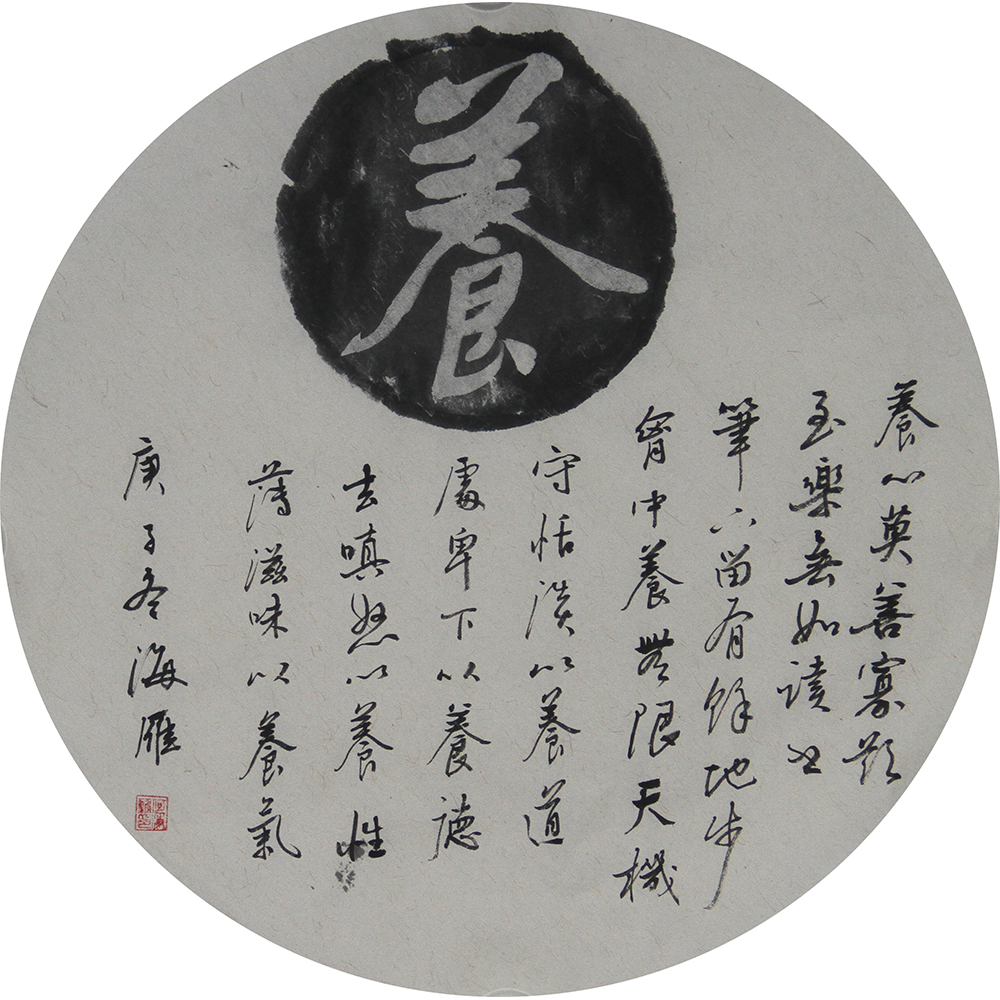 養
養心莫善寡欲
至樂無如讀书
筆下留有餘地步
胷中養無限天機
守恬淡以養道
處卑下以養德
去嗔怒以養性
薄滋味以養氣
庚子冬海雁